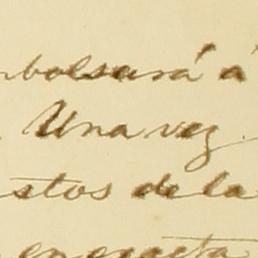 mbolsará á
Una vez
stos de la